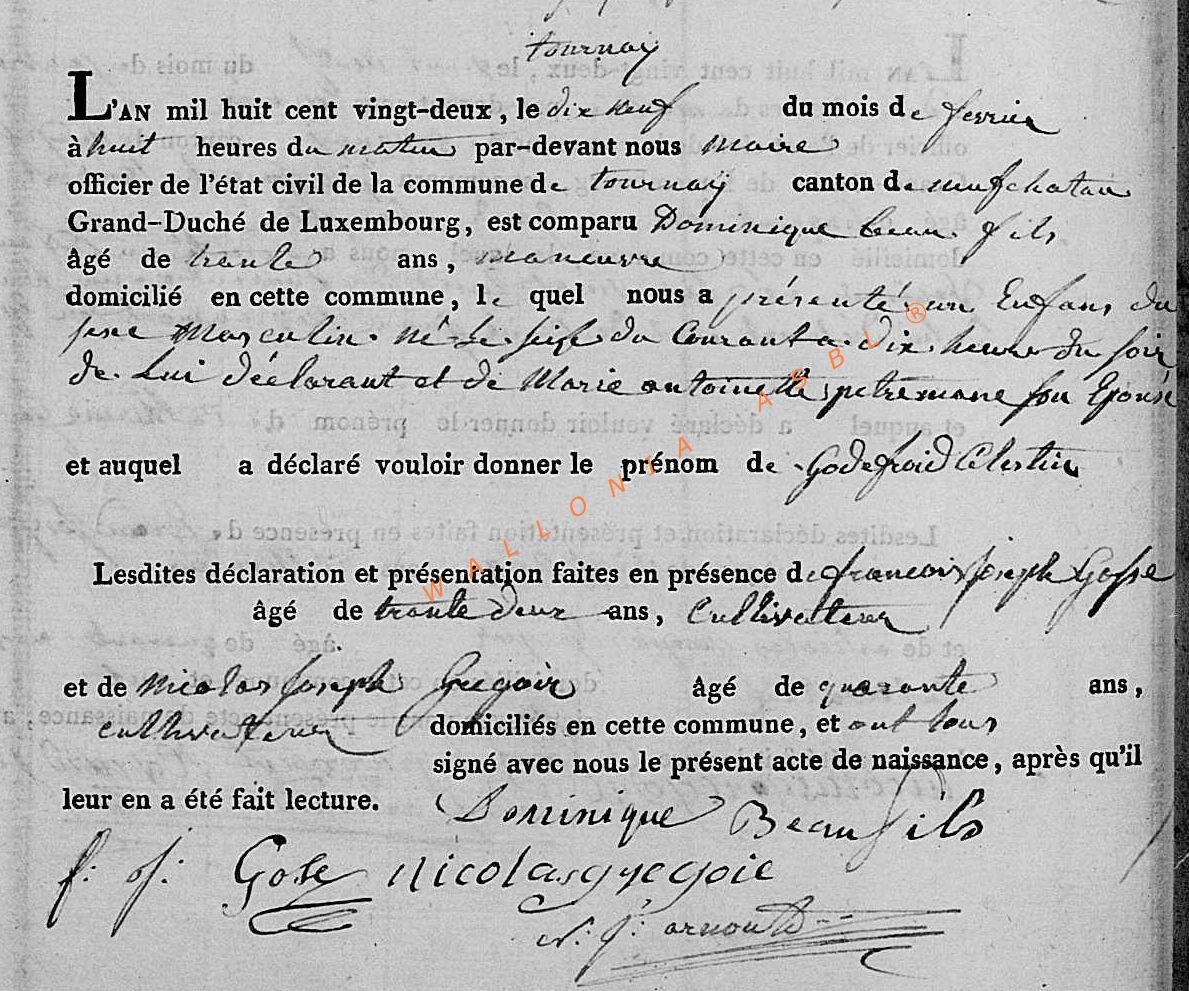 tournay
L'AN mil huit cent vingt-deux, le dix neuf du mois de fevrier
à huit heures du matin par-devant nous maire
officier de l'état civil de la commune de tournaÿ canton de neufchatau
Grand-Duché de Luxembourg, est comparu Dominique beau fils
âgé de trante ans, maneuvre
domicilié en cette commune, le quel nous a présenté un Enfans du
sexe Masculin. né le seise du Courant a dix heure du soir
de Lui déclarant et de Marie antoinette petremane son Epouse
et auquel a déclaré vouloir donner le prénom de Godefroid Celestin
Lesdites déclaration et présentation faites en présence de francois Joseph Gosse
âgé de trante deux ans, Cultivateur
et de nicolas Joseph Gregoir âgé de quarante ans,
cultivateur domiciliés en cette commune, et ont tous
signé avec nous le présent acte de naissance, après qu'il
leur en a été fait lecture. Dominique Beaufils
f: j: Gosse nicolas gregoie
n: j: arnould
WALLONIA ASBL ®